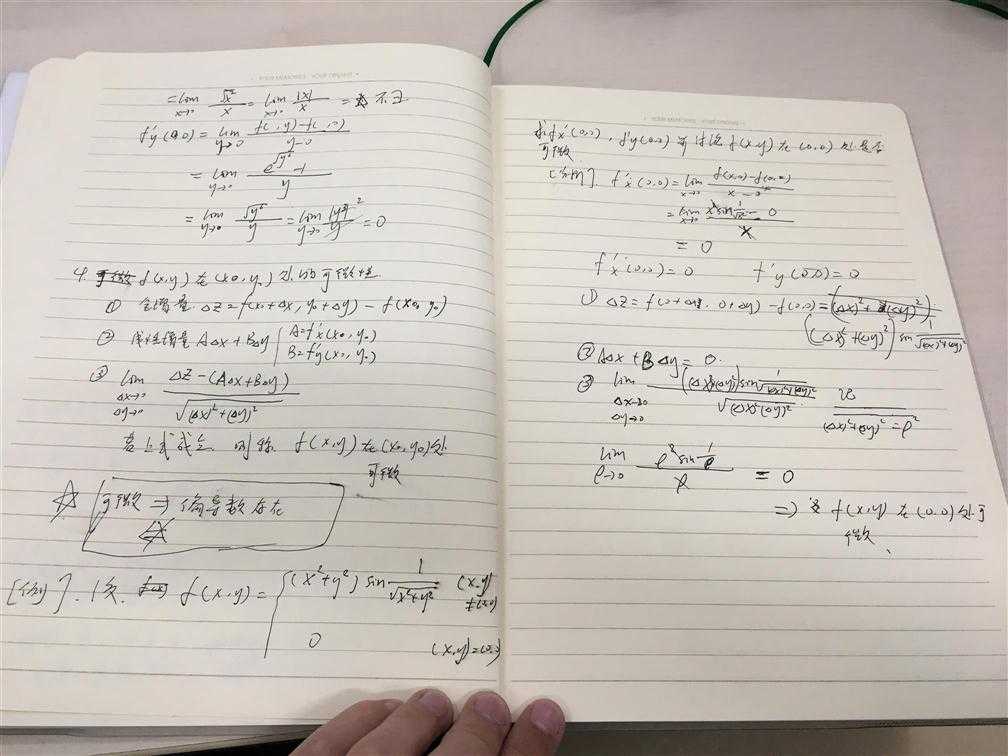 YOUR MEMORIES YOUR DREAMS
= lim x→0 √x² / x = lim x→0 |x| / x = 不∃
f'y(0,0) = lim y→0 f( , y) - f( , 0) / y-0
= lim y→0 e^√y⁴ - 1 / y
= lim y→0 √y⁴ / y = lim y→0 |y²| / y = 0
4. f(x,y) 在 (x0, y0) 处的可微性
① 全增量 Δz = f(x0+Δx, y0+Δy) - f(x0, y0)
② 线性增量 AΔx + BΔy { A=f'x(x0, y0)
B=f'y(x0, y0)
③ lim Δx→0 Δy→0 Δz - (AΔx+BΔy) / √(Δx)²+(Δy)²
若上式成立 则称 f(x,y) 在 (x0, y0) 处
可微
☆ 可微 ⇒ 偏导数存在
☆
[例]. 设 f(x,y) = { (x²+y²) sin 1/√x²+y² (x,y) ≠(0,0)
0 (x,y)=(0,0)
YOUR MEMORIES YOUR DREAMS
求f'x(0,0), f'y(0,0) 并讨论 f(x,y) 在 (0,0) 处是否
可微
[分析]. f'x(0,0) = lim x→0 f(x,0) - f(0,0) / x-0
= lim x→0 x² sin 1/√x² - 0 / x
= 0
f'x(0,0)=0 f'y(0,0)=0
① Δz = f(0+Δx, 0+Δy) - f(0,0) =
((Δx)²+(Δy)²) sin 1/√(Δx)²+(Δy)²
② AΔx + BΔy = 0.
③ lim Δx→0 Δy→0 ((Δx)²+(Δy)²) sin 1/√(Δx)²+(Δy)² / √(Δx)²+(Δy)² (Δx)²+(Δy)² = ρ²
lim ρ→0 ρ² sin 1/ρ / ρ = 0
⇒ f(x,y) 在 (0,0) 处可
微、